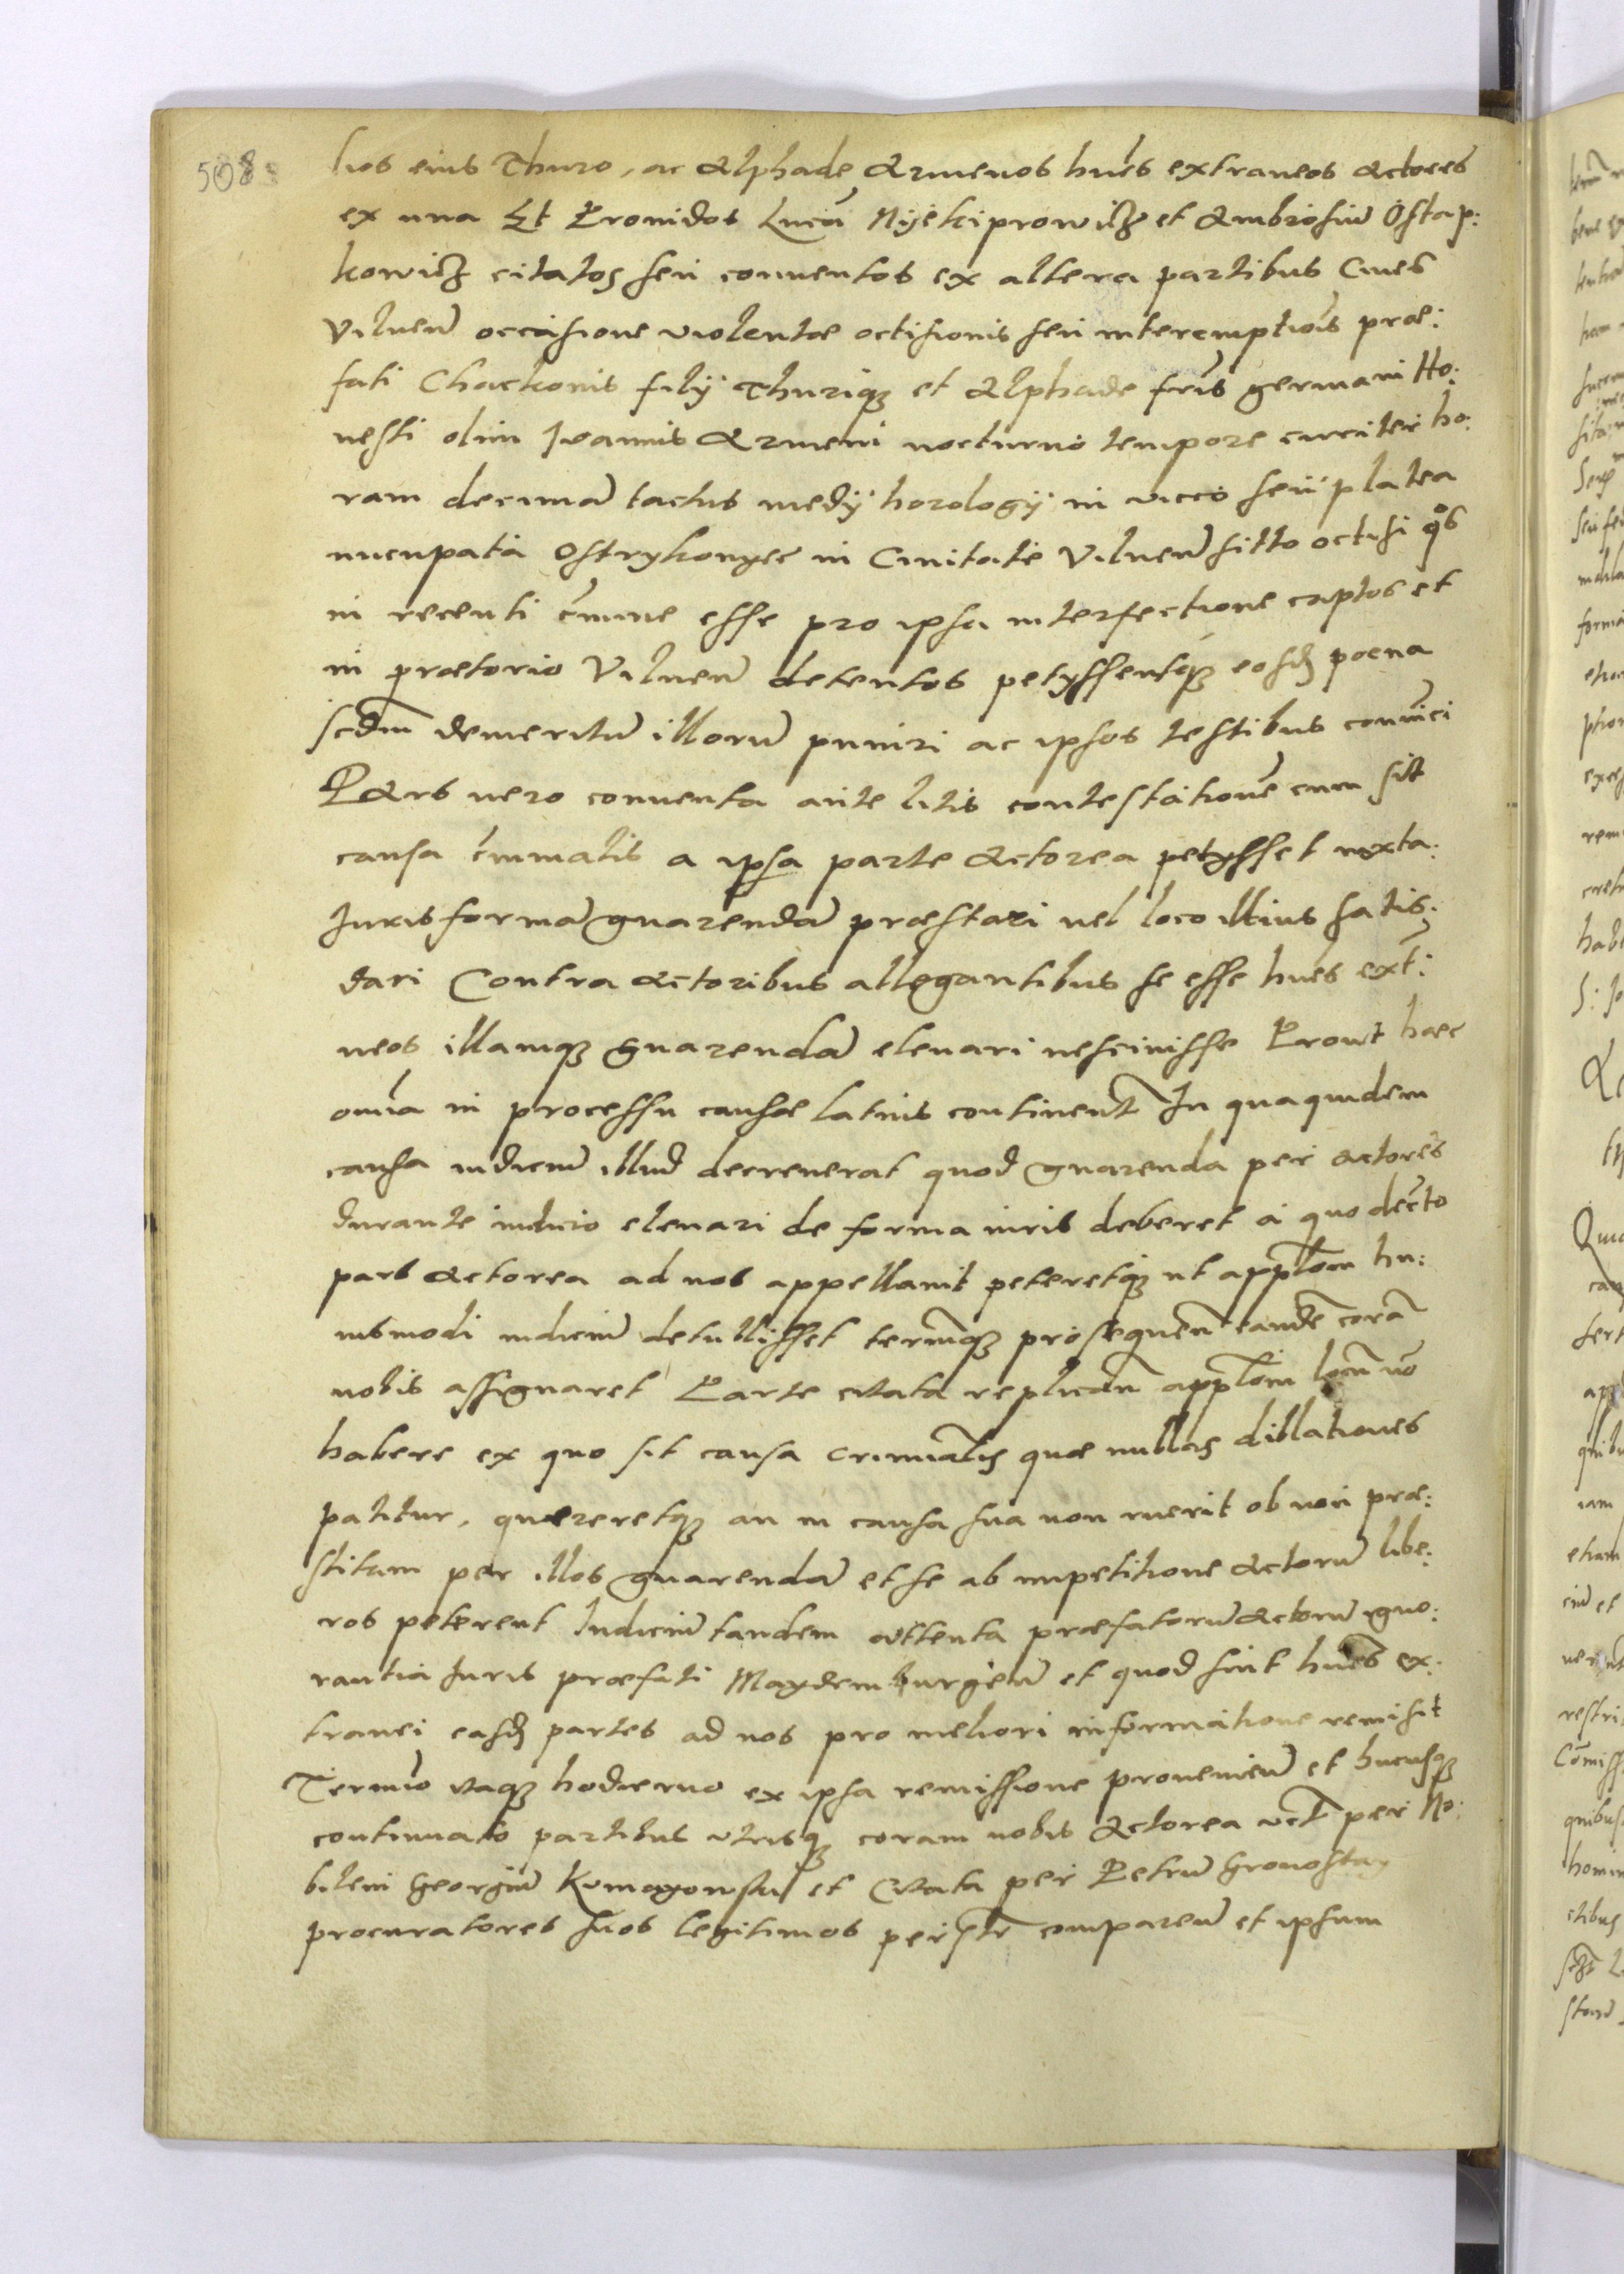 508
lios eius Thuro, ac Alphade Armenos hoĩes extraneos Actores
ex una Et Prouidos Lucã Nyekiprowicz et Ambrosiũ Ostap:
kowicz citatos seu conuentos ex altera partibus Ciues
Vilnen̄ occasione violentae occisionis seu interemptiõis prae:
fati Chackonis filij Thuriq; et Alphade fr̃is germani Ho:
nesti olim Joannis Armeni nocturno tempore circiter ho:
ram decimã tactus medij horologij in vicco seu platea
nucupata Ostrykonyec in Ciuitate Vilnen̄ sitto occisi q̊s
in recenti cr̃imine esse pro ipsa interfectione captos et
in praetorio Vilnen̄ detentos petyssentq; eosd̃ poena
scdm̃ demeritũ illorũ puniri ac ipsos testibus conuĩci
Pars uero conuenta ante litis contestationẽ cum sit
causa cr̃iminalis a ipsa parte Actorea petysset iuxta:
Juris formã guarendã praestari uel loco illius satis:
dari Contra Actoribus allegantibus se esse hoĩes ext̃:
neos illamq; guarendã eleuari nesciuisse Prout haec
om̃ia in processu causae latius continent̃ In qua quidem
causa iudiciũ illud decreuerat quod guarenda per Actores
durante iudicio eleuari de forma iuris deberet a quo decr̃to
pars Actorea ad nos appellauit peteretq; ut appl̃om hu:
iusmodi iudiciũ detullisset termĩq; prosequen̄ eandẽ corã
nobis assignaret Parte citata replicañ appl̃om locũ nõ
habere ex quo sit causa criminalis quae nullas dillationes
patitur, quaereretq; an in causa sua non ruerit ob non prae:
stitam per illos guarendã et se ab impetitione Actorũ libe:
ros peterent Judiciũ tandem attenta praefatorũ Actorũ igno:
rantia Juris praefati Maydemburgen̄ et quod sint hoĩes ex:
tranei easd̃ partes ad nos pro meliori informatione remisit
Termĩo itaq; hodierno ex ipsa remissione prouenien̄ et hucusq;
continuato partibus utrisq; coram nobis Actorea uc̃t per No:
bilem Georgiũ et Citata per Petrũ Gronostay
procuratores suos legitimos comparen̄ et ipsum